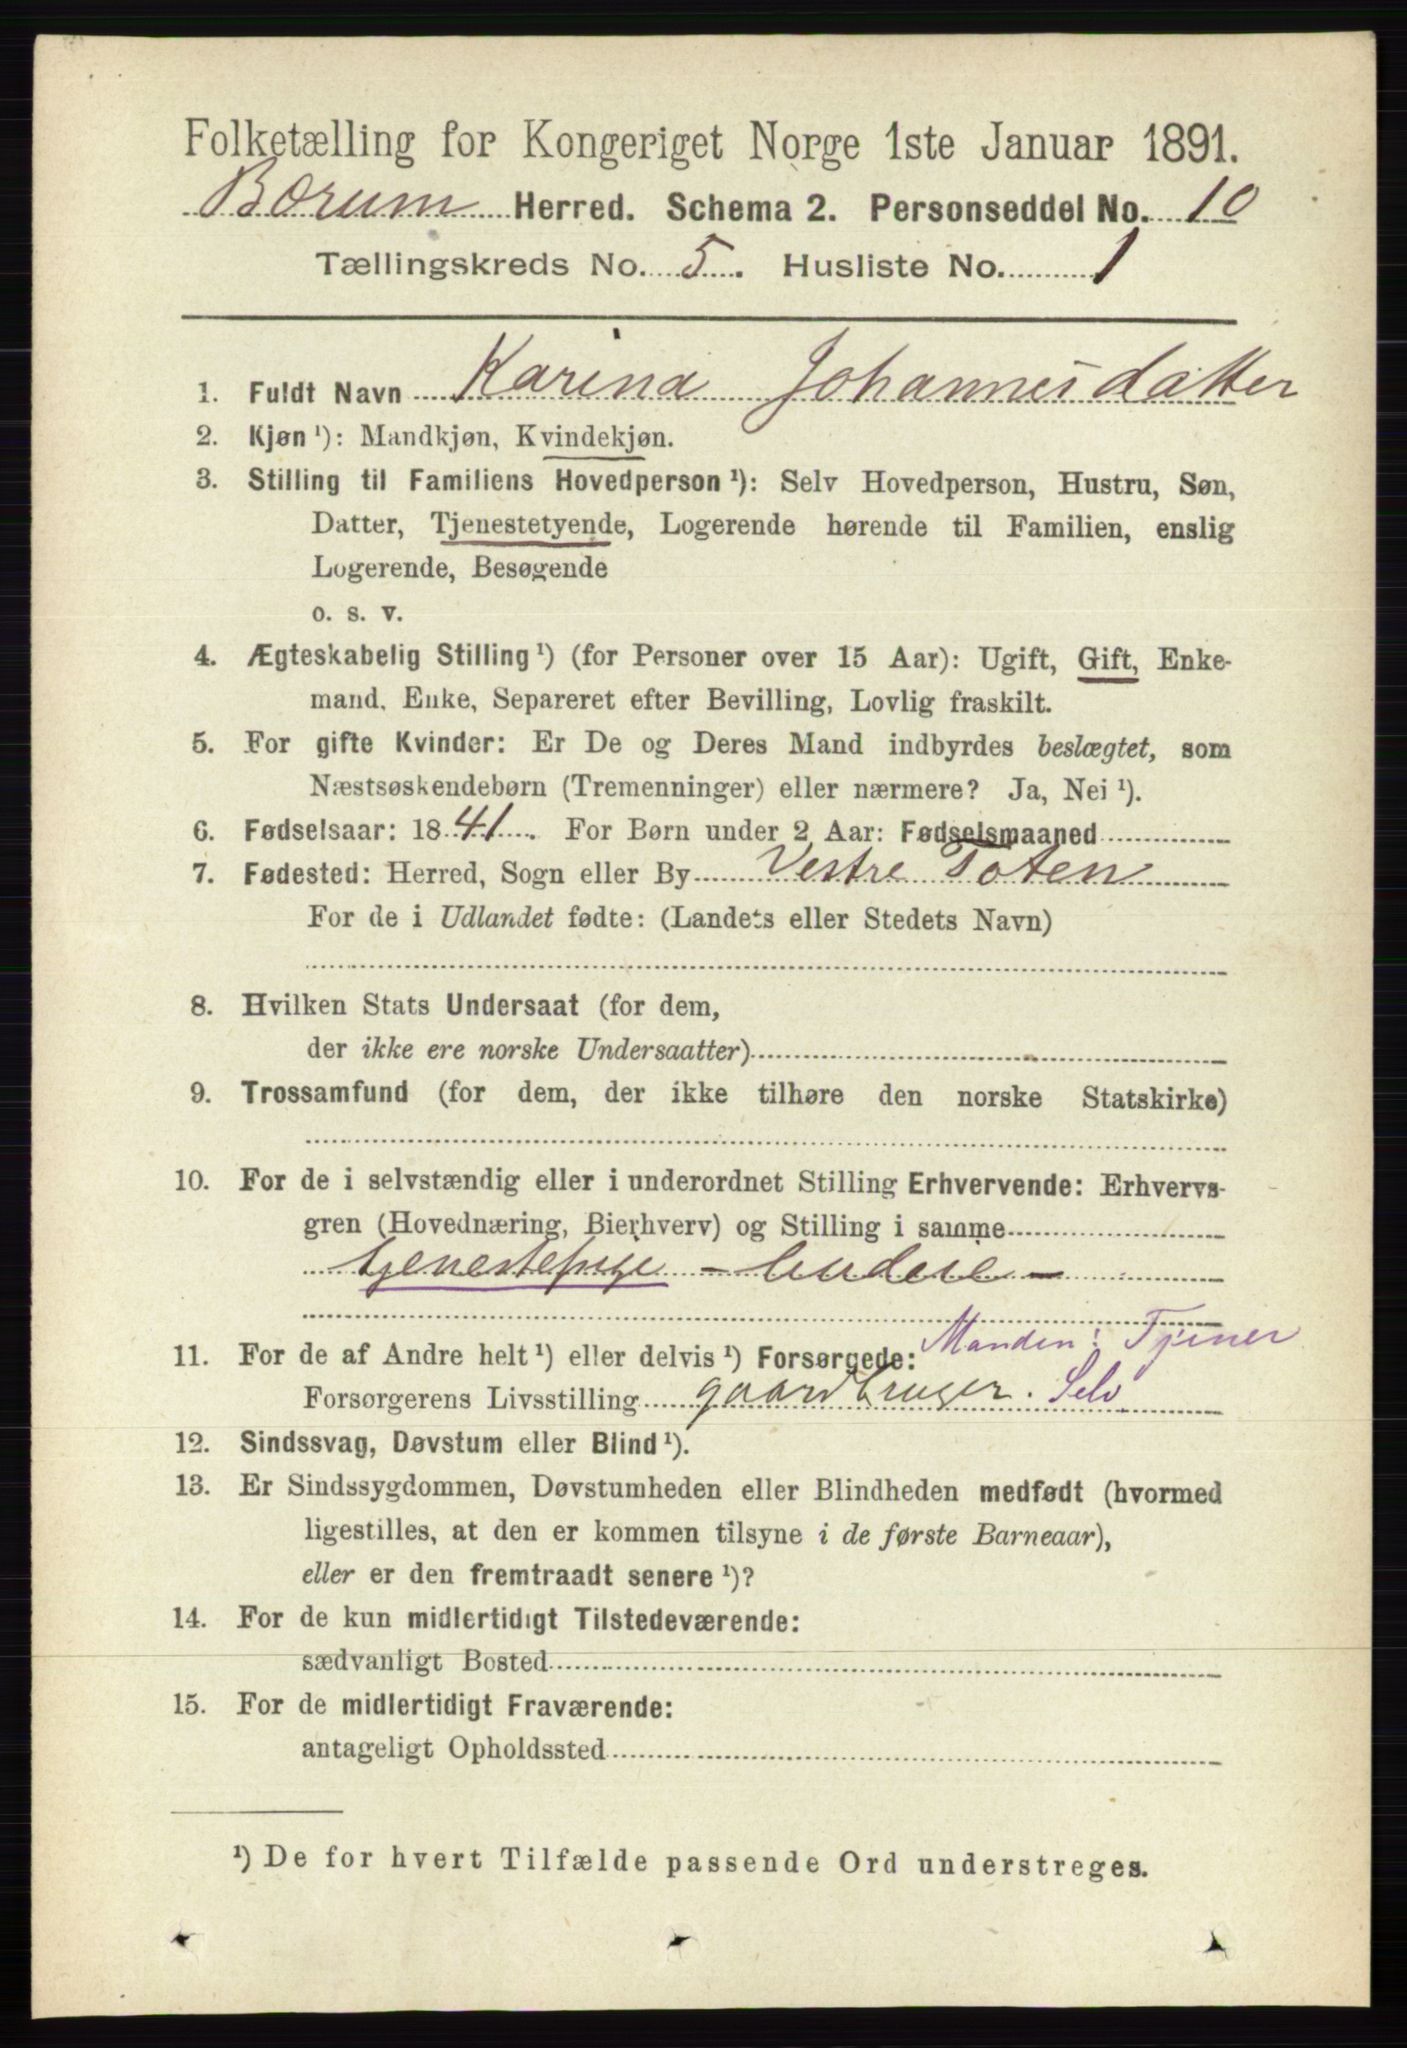 Folketælling for Kongeriget Norge 1ste Januar 1891.
Bærum Herred. Schema 2. Personseddel No. 10
Tællingskreds No. 5. Husliste No. 1
1. Fuldt Navn Karina Johannesdatter
2. Kjøn ¹): Mandkjøn, Kvindekjøn.
3. Stilling til Familiens Hovedperson ¹): Selv Hovedperson, Hustru, Søn,
Datter, Tjenestetyende, Logerende hørende til Familien, enslig
Logerende, Besøgende
o. s. v.
4. Ægteskabelig Stilling ¹) (for Personer over 15 Aar): Ugift, Gift, Enke-
mand, Enke, Separeret efter Bevilling, Lovlig fraskilt.
5. For gifte Kvinder: Er De og Deres Mand indbyrdes beslægtet, som
Næstsøskendebørn (Tremenninger) eller nærmere? Ja, Nei ¹).
6. Fødselsaar: 1841. For Børn under 2 Aar: Fødselsmaaned
7. Fødested: Herred, Sogn eller By Vestre Toten
For de i Udlandet fødte: (Landets eller Stedets Navn)
8. Hvilken Stats Undersaat (for dem,
der ikke ere norske Undersaatter)
9. Trossamfund (for dem, der ikke tilhøre den norske Statskirke)
10. For de i selvstændig eller i underordnet Stilling Erhvervende: Erhvervs-
gren (Hovednæring, Bierhverv) og Stilling i samme
tjenestepige -  -
11. For de af Andre helt ¹) eller delvis ¹) Forsørgede: Manden: Tjener
Forsørgerens Livsstilling gaardbruger. Selv
12. Sindssvag, Døvstum eller Blind ¹).
13. Er Sindssygdommen, Døvstumheden eller Blindheden medfødt (hvormed
ligestilles, at den er kommen tilsyne i de første Barneaar),
eller er den fremtraadt senere ¹)?
14. For de kun midlertidigt Tilstedeværende:
sædvanligt Bosted
15. For de midlertidigt Fraværende:
antageligt Opholdssted
¹) De for hvert Tilfælde passende Ord understreges.